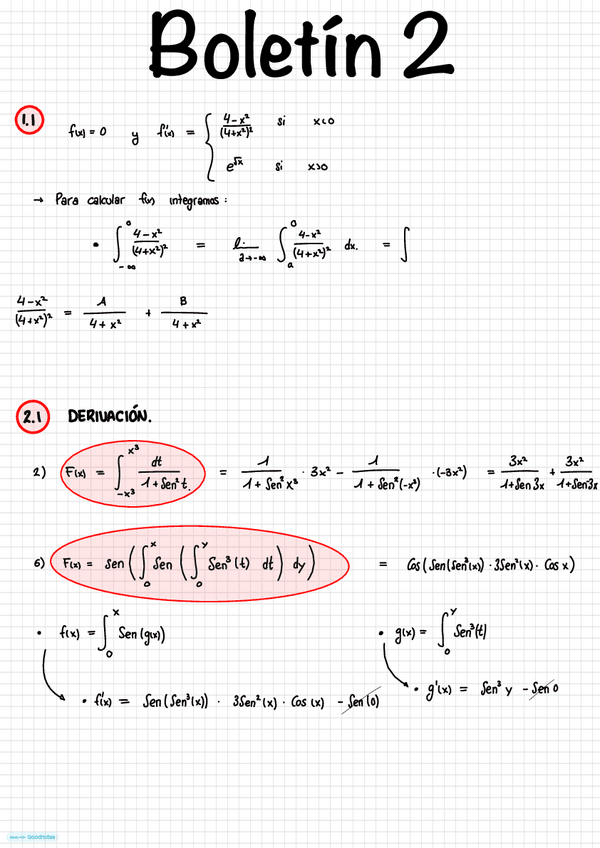 Boletín 2
1.1 f(x) = 0 y f'(x) = { (4-x²)/(4+x²)² si x<0
e^√x si x>0
→ Para calcular f(x) integramos:
• ∫_{-∞}^{0} (4-x²)/(4+x²)² = l. a→-∞ ∫_{a}^{0} (4-x²)/(4+x²)² dx. = ∫
(4-x²)/(4+x²)² = A/(4+x²) + B/(4+x²)
2.1 DERIVACIÓN.
2) F(x) = ∫_{-x³}^{x³} dt/(1+Sen²t.) = 1/(1+Sen²x³) · 3x² - 1/(1+Sen²(-x³)) · (-3x²) = 3x²/(1+Sen3x) + 3x²/(1+Sen3x)
6) F(x) = Sen(∫_{0}^{x} Sen(∫_{0}^{y} Sen³(t) dt) dy) = Cos(Sen(Sen³(x)) · 3Sen²(x) · Cos x)
• f(x) = ∫_{0}^{x} Sen(g(x)) • g(x) = ∫_{0}^{y} Sen³(t)
• f'(x) = Sen(Sen³(x)) · 3Sen²(x) · Cos(x) - Sen(0) • g'(x) = Sen³ y - Sen 0
Made with Goodnotes